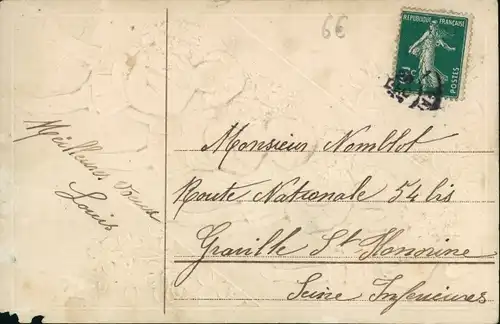 6€
REPUBLIQUE FRANÇAISE
POSTES
Meilleures
Louis
Monsieur Nomblot
Route Nationale 54 bis
Graville St Honorine
Seine Inférieures